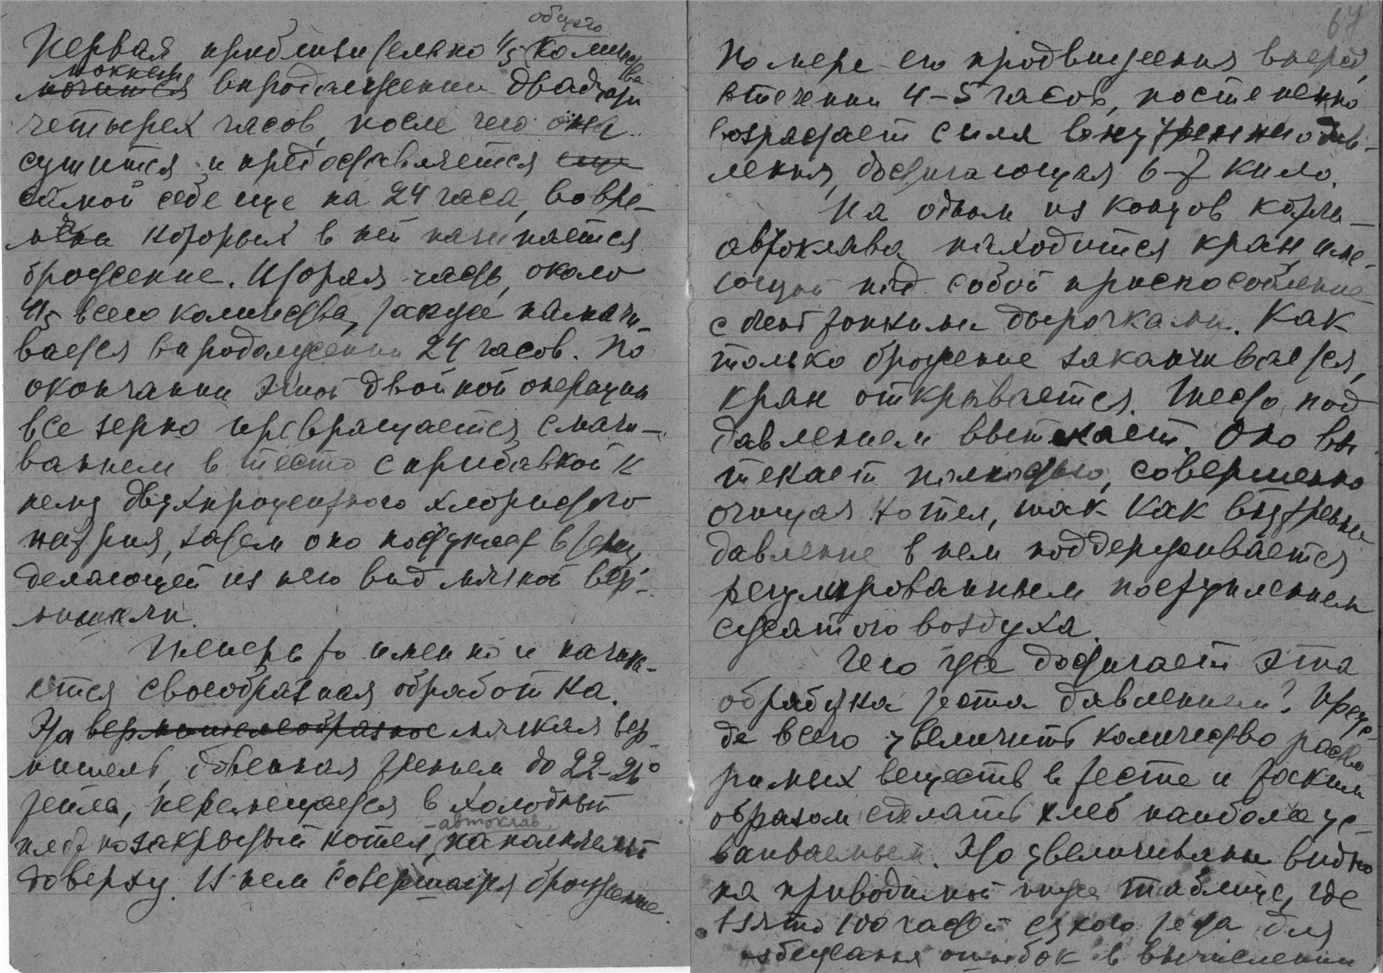 общего
Первая приблизительно 1/5 количества
мокнет
мочится в продолжении двадцати
четырех часов, после чего она
сушится и предоставляется
самой себе еще на 24 часа, во вре-
мена которых в ней начинается
брожение. Вторая часть, около
4/5 всего количества, также намачи-
вается в продолжении 24 часов. По
окончании этой двойной операции
все зерно превращается смачи-
ванием в тесто с прибавкой к
нему двухпроцентного хлористого
натрия, затем оно поступает в терку
делающей из него вид мягкой вер-
мишели.
Теперь то именно и начина-
ется своеобразная обработка.
Эта вермишелеобразное мягкая вер-
мишель, трением до 22-26°
тепла, перемещается в холодный
автоклав
плотно закрытый котел, наполняемый
доверху. В нем совершается брожение.
67
По мере его продвижения вперед,
в течении 4-5 часов, постепенно
возрастает сила внутреннего дав-
ления, достигающая 6-7 кило.
На одном из концов котла-
автоклава находится кран, име-
ющий под собой приспособление
с тонкими дырочками. Как
только брожение заканчивается,
кран открывается. Тесто под
давлением вытекает. Оно вы-
текает полностью, совершенно
очищая котел, так как внутреннее
давление в нем поддерживается
регулированным поступлением
сжатого воздуха.
Чего же достигает эта
обработка теста давлением? Преж-
де всего увеличить количество раство-
римых веществ в тесте и таким
образом сделать хлеб наиболее ус-
ваиваемым. Это увеличивание видно
на приводимой ниже таблице, где
взято 100 частей сухого теста для
избежания ошибок в вычислении